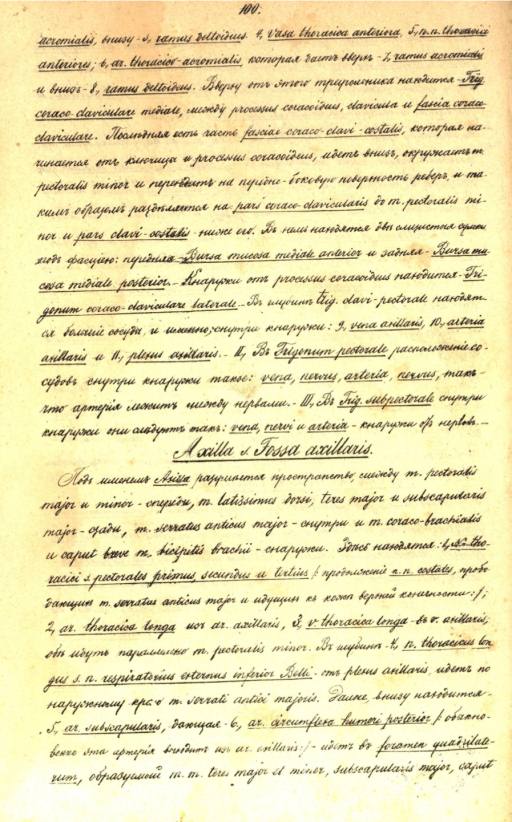 100.
acromialis, внизу - 3, ramus deltoideus. 4, Vasa thoracica anteriora, 5, n.n. thoracici
anteriores; 6, ar. thoracico-acromialis, которая даетъ вверхъ - 7, ramus acromialis
и внизъ - 8, ramus deltoideus. Вверху отъ этого треугольника находится - Trig.
coraco-claviculare mediale, между processus coracoideus, clavicula и fascia coraco-
claviculare. Последняя есть часть fasciae coraco-clavi-costalis, которая на-
чинается отъ ключицы и processus coracoideus, идетъ внизъ, окружаетъ m.
pectoralis minor и переходитъ на передне-боковую поверхность реберъ, и та-
кимъ образомъ разделяется на pars coraco-clavicularis до m. pectoralis mi-
nor и pars clavi-costalis - ниже его. Въ ней находятся две слизистыя сумки
подъ фасціею: передняя - Bursa mucosa mediale anterior и задняя - Bursa mu-
cosa mediale posterior. - Кнаружи отъ processus coracoideus находится - Tri-
gonum coraco-claviculare laterale. - Въ глубинѣ trig. clavi-pectorale находят-
ся большіе сосуды, и именно, снутри кнаружи: 9, vena axillaris, 10, arteria
axillaris и 11, plexus axillaris. - II, Въ Trigonum pectorale расположеніе со-
судовъ снутри кнаружи такое: vena, nervus, arteria, nervus, такъ
что артерія лежитъ между нервами. - III, Въ Trig. subpectorale снутри
кнаружи они следуютъ такъ: vena, nervi и arteria - кнаружи отъ нервовъ. -
Axilla s. Fossa axillaris.
Подъ именемъ Axilla разумѣется пространство, между m. pectoralis
major и minor - спереди, m. latissimus dorsi, teres major и subscapularis
major - сзади, m. serratus anticus major - снутри и m. coraco-brachialis
и caput breve m. bicipitis brachii - снаружи. Здѣсь находятся: 1, n.n. tho-
racici s. pectorales primus, secundus и tertius /: продолженіе n.n. costales, пробо-
дающихъ m. serratus anticus major и идущихъ къ кожѣ верхней конечности :/;
2, ar. thoracica longa изъ ar. axillaris, 3, v. thoracica longa - въ v. axillaris;
обѣ идутъ параллельно m. pectoralis minor. Въ глубинѣ - 4, n. thoracicus lon-
gus s. n. respiratorius externus inferior Belli - отъ plexus axillaris, идетъ по
наружному краю m. serrati antici majoris. Далѣе, внизу находится -
5, ar. subscapularis, дающая - 6, ar. circumflexa humeri posterior /: обыкно-
венно эта артерія выходитъ изъ ar. axillaris :/ - идетъ въ foramen quadrilate-
rum, образуемой m. m. teres major et minor, subscapularis major, caput